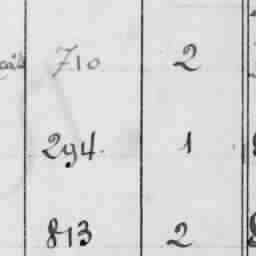 710 2
294. 1
813 2